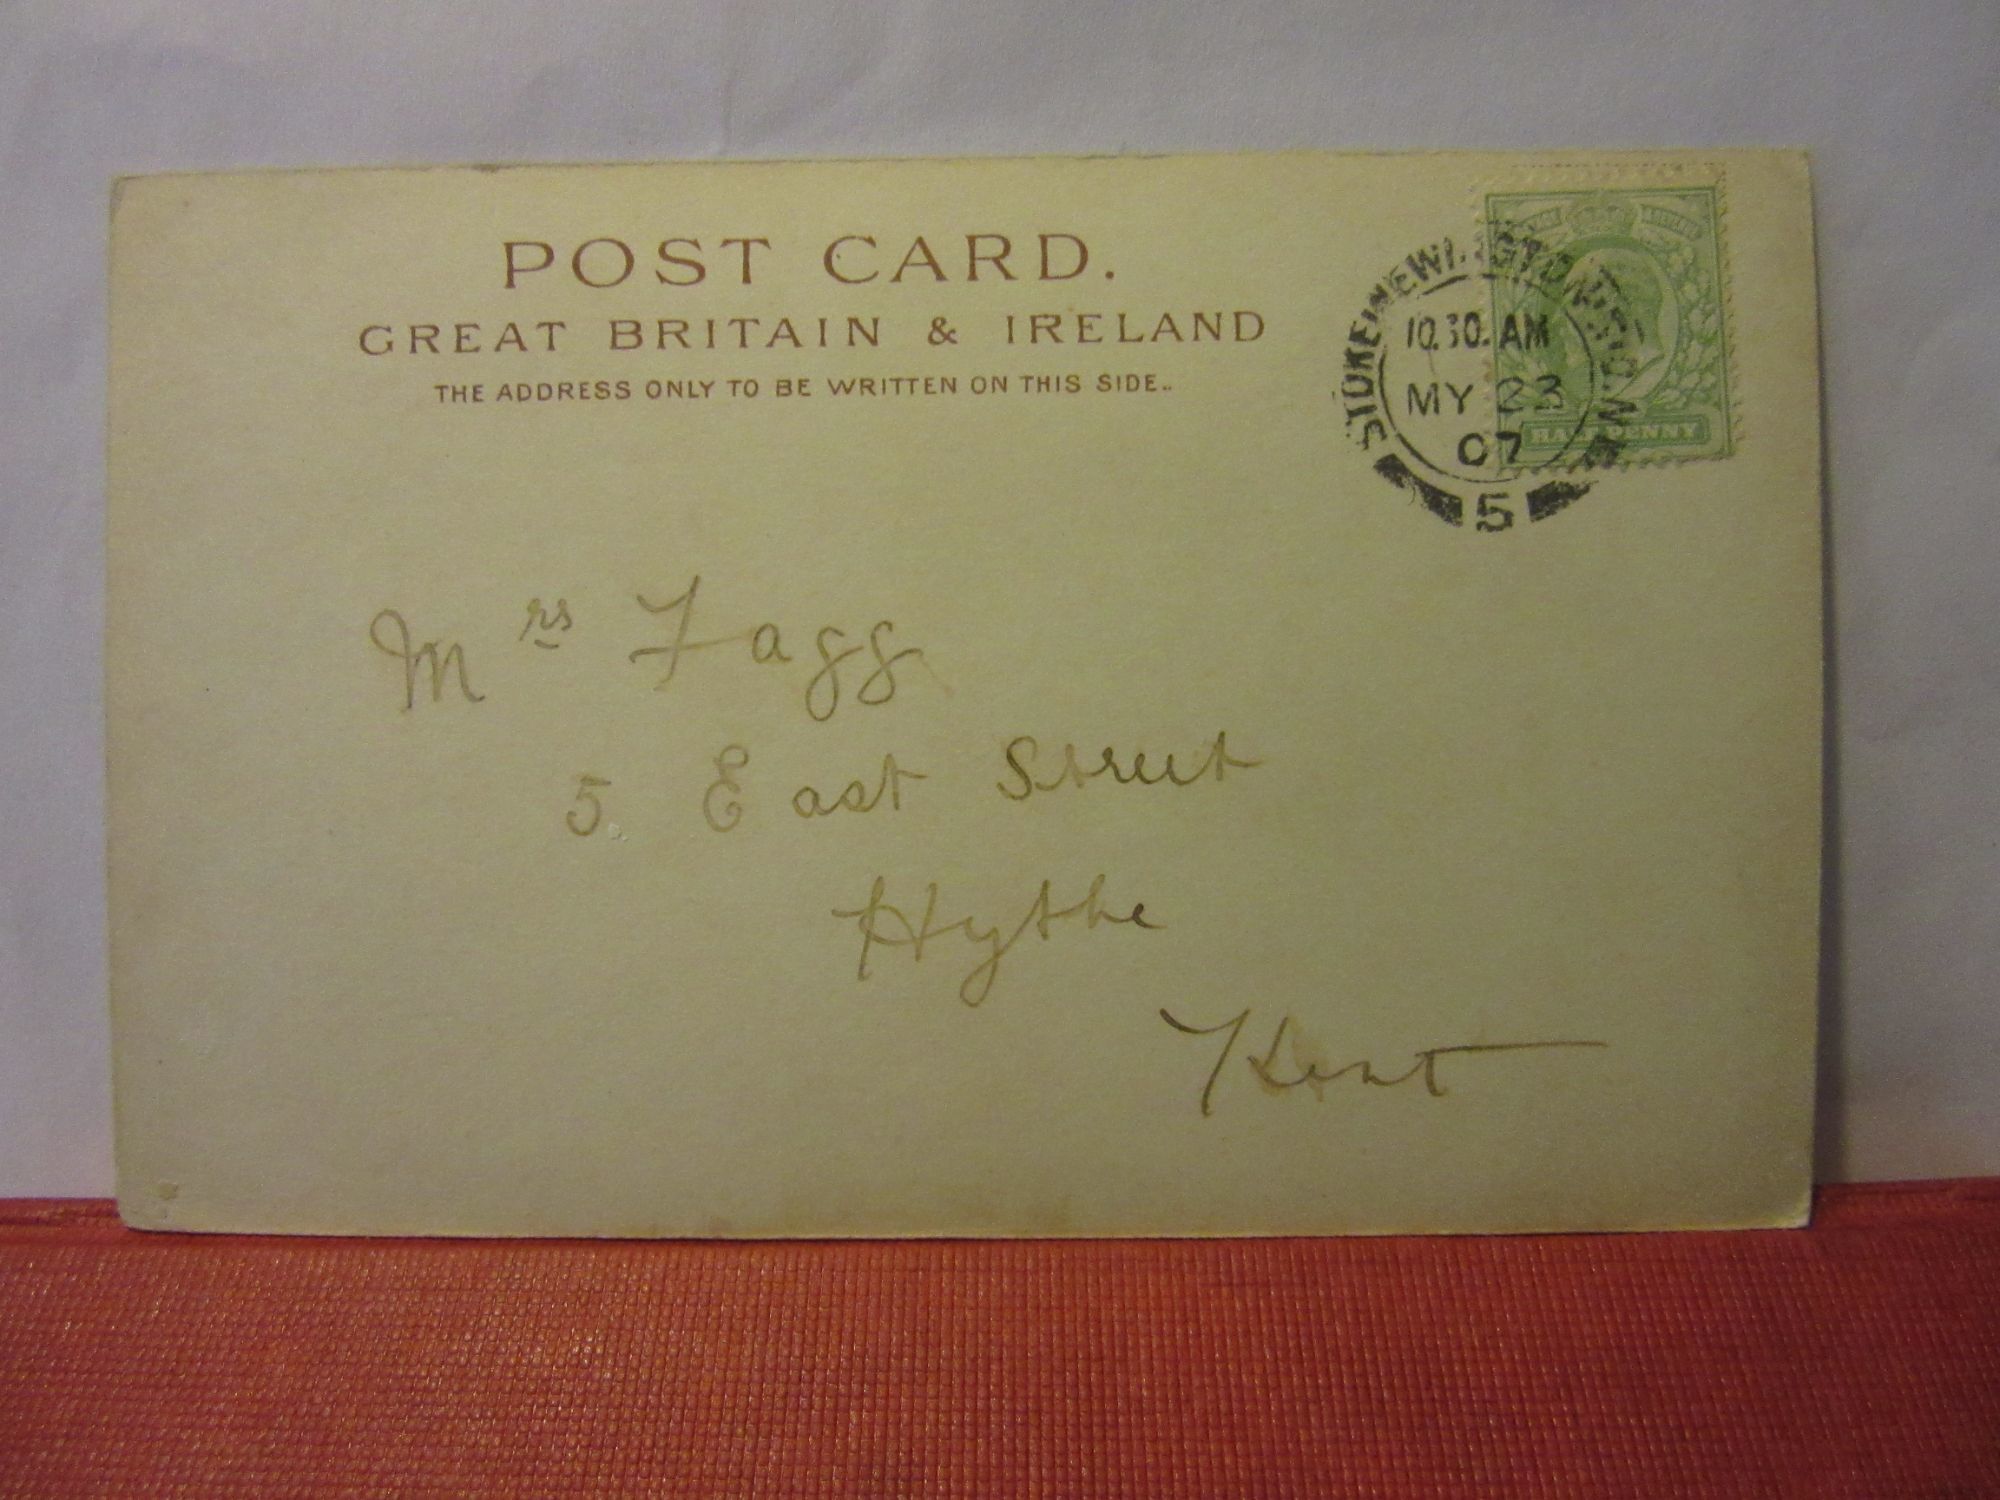 POST CARD.
GREAT BRITAIN & IRELAND
THE ADDRESS ONLY TO BE WRITTEN ON THIS SIDE..
STOKE NEWINGTON
10.30. AM
MY 23
07
5
HALF PENNY
Mrs Fagg
5 East Street
Hythe
Kent